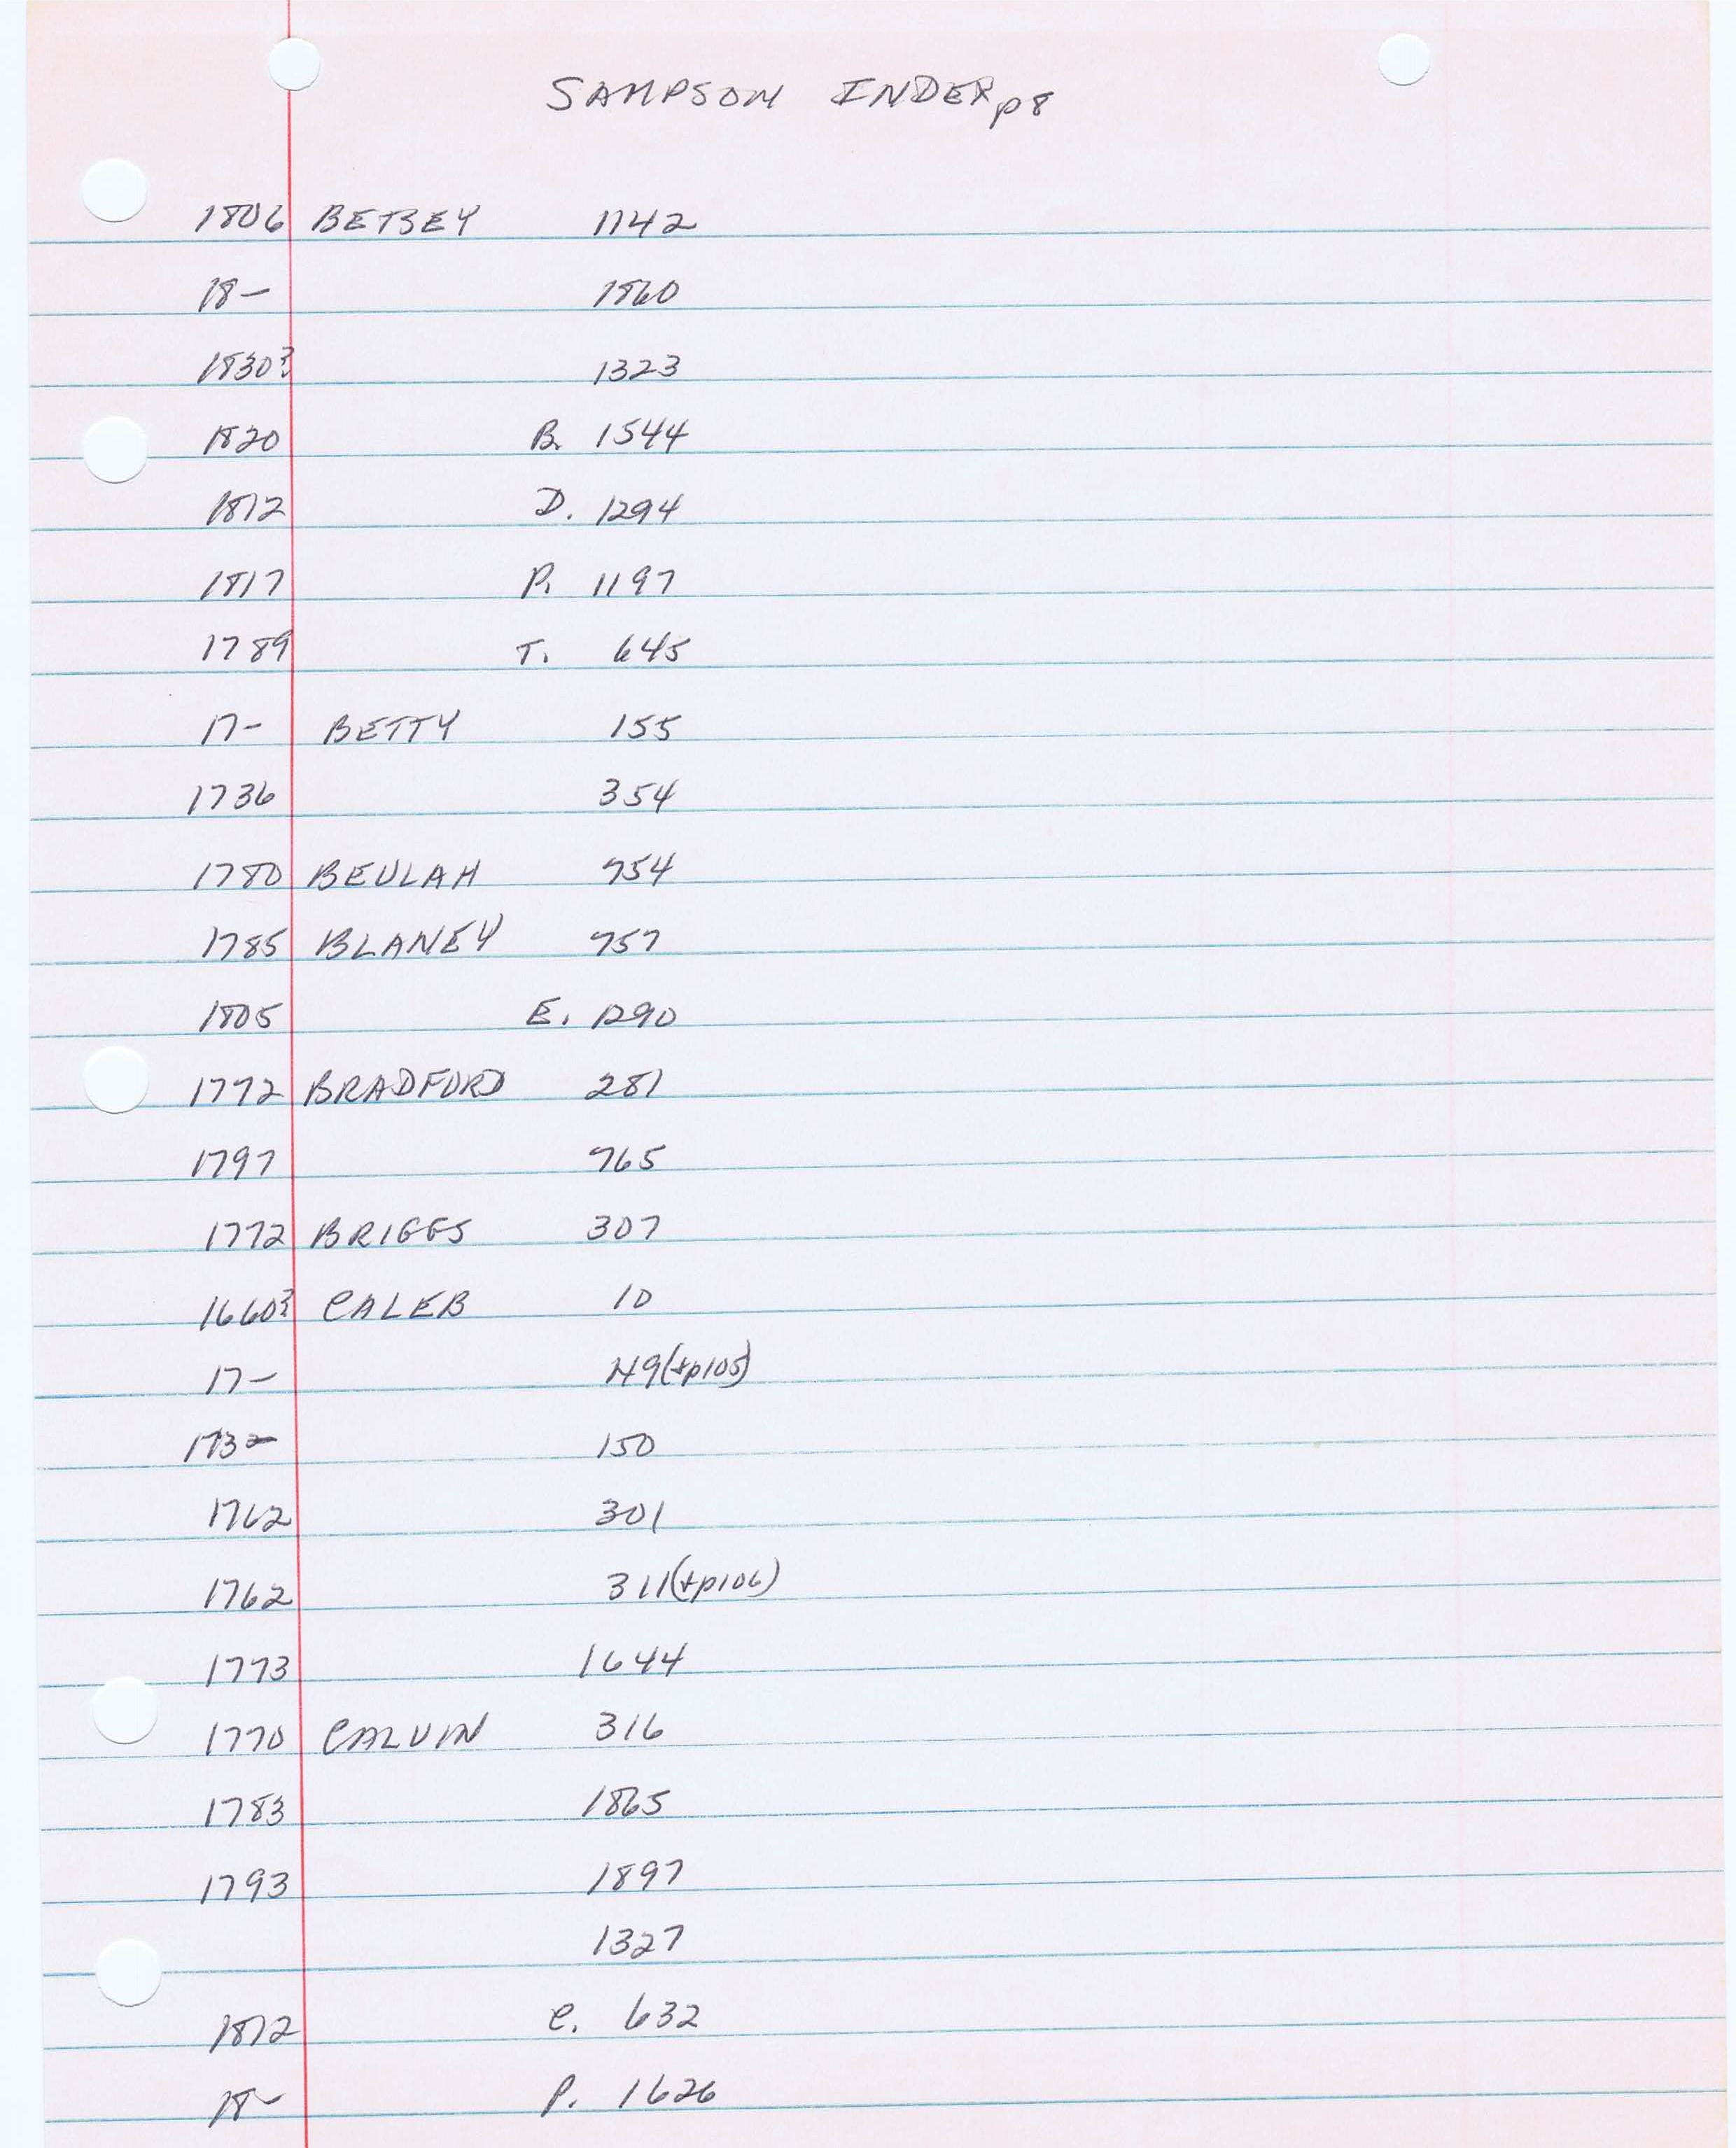 SAMPSON INDEX p8
1806 BETSEY 1142
18- 1860
1830? 1323
1820 B. 1544
1812 D. 1294
1817 P. 1197
1789 T. 645
17- BETTY 155
1736 354
1780 BEULAH 754
1785 BLANEY 757
1805 E. 1290
1772 BRADFORD 281
1797 765
1772 BRIGGS 307
1660? CALEB 10
17- 149(+p105)
173- 150
1762 301
1762 311(+p106)
1773 1644
1770 CALVIN 316
1783 1865
1793 1897
1327
1812 C. 632
18- P. 1626